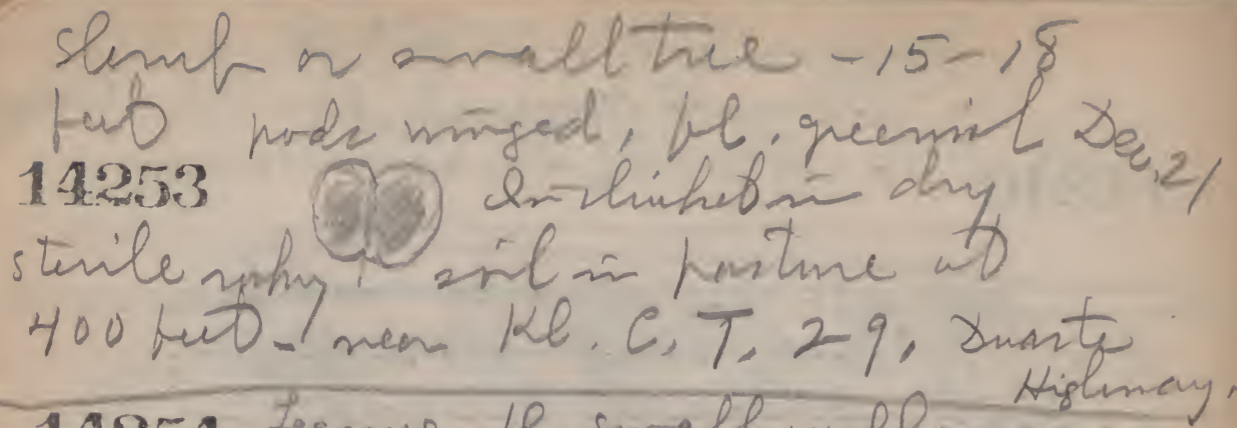 shrub or small tree - 15-18
feet pods winged, fl. greenish Dec, 21
14253 In thicket in dry
sterile rocky soil in pasture at
400 feet - near Kl. C. T. 29, Duarte
Highway.
14254 small